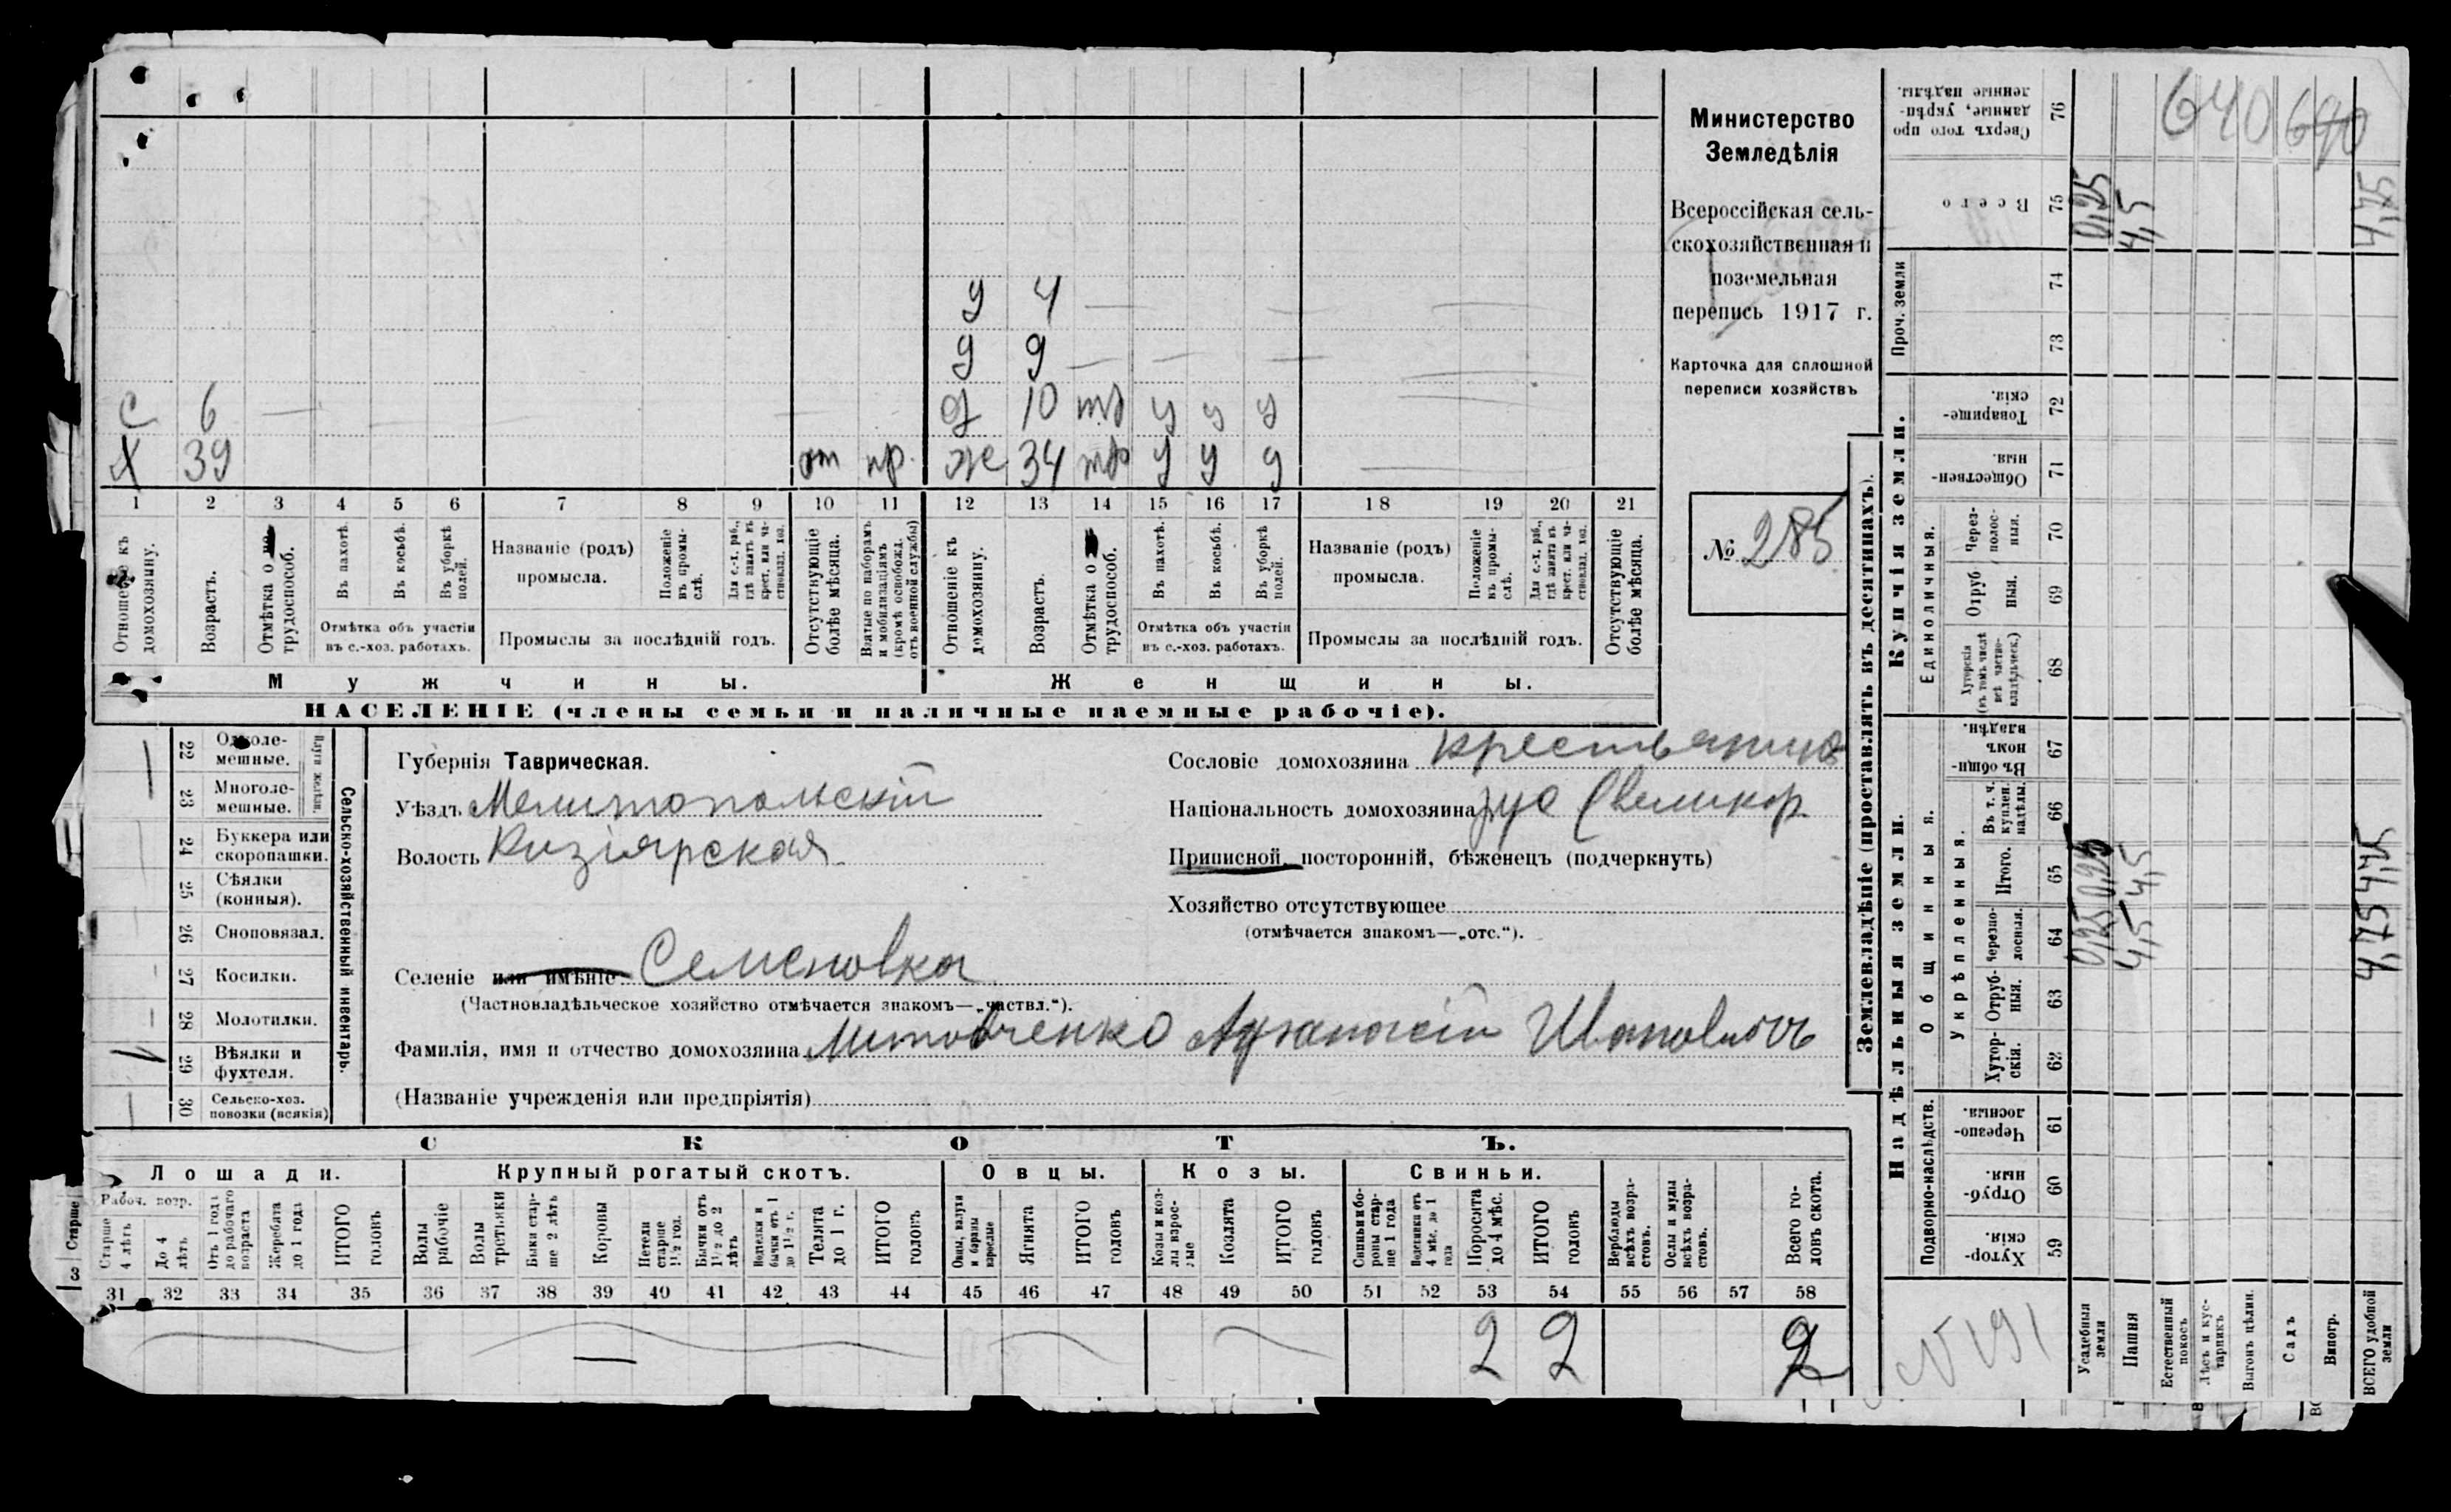 Министерство
Земледѣлія
Всероссійская сель-
скохозяйственная и
поземельная
перепись 1917 г.
Карточка для сплошной
переписи хозяйствъ
№ 285
у 4 —
д 9 — — —
С 6 — д 10 тр у у у
Х 39 от пр. ж 34 тр у у у
1 2 3 4 5 6 7 8 9 10 11 12 13 14 15 16 17 18 19 20 21
Отношеніе къ домохозяину.
Возрастъ.
Отмѣтка о трудоспособ.
Въ пахотѣ.
Въ косьбѣ.
Въ уборкѣ полей.
Отмѣтка объ участіи въ с.-хоз. работахъ.
Названіе (родъ) промысла.
Положеніе въ промы-слѣ.
Для с.-х. раб., гдѣ занятъ въ крест. или ча-стновлад. хоз.
Промыслы за послѣдній годъ.
Отсутствующіе болѣе мѣсяца.
Взятые по наборамъ и мобилизаціямъ (кромѣ освобожд. отъ военной службы)
Отношеніе къ домохозяину.
Возрастъ.
Отмѣтка о трудоспособ.
Въ пахотѣ.
Въ косьбѣ.
Въ уборкѣ полей.
Отмѣтка объ участіи въ с.-хоз. работахъ.
Названіе (родъ) промысла.
Положеніе въ промы-слѣ.
Для с.-х. раб., гдѣ занята въ крест. или ча-стновлад. хоз.
Промыслы за послѣдній годъ.
Отсутствующіе болѣе мѣсяца.
Мужчины. Женщины.
НАСЕЛЕНІЕ (члены семьи и наличные наемные рабочіе).
Сельско-хозяйственный инвентарь.
Плуги желѣзн.
22 Одноле-мешные.
23 Многоле-мешные.
24 Буккера или скоропашки.
25 Сѣялки (конныя).
26 Сноповязал.
27 Косилки.
28 Молотилки.
29 Вѣялки и фухтеля.
30 Сельско-хоз. повозки (всякія)
Губернія Таврическая.
Уѣздъ Мелитопольскій
Волость Кизіярская
Селеніе или имѣніе Семеновка
(Частновладѣльческое хозяйство отмѣчается знакомъ—„частвл.“).
Фамилія, имя и отчество домохозяина Литовченко Афанасій Ивановичъ
(Названіе учрежденія или предпріятія)
Сословіе домохозяина крестьянинъ
Національность домохозяина рус (великор.
Приписной, посторонній, бѣженецъ (подчеркнуть)
Хозяйство отсутствующее
(отмѣчается знакомъ—„отс.“).
СКОТЪ.
Лошади. Крупный рогатый скотъ. Овцы. Козы. Свиньи.
Рабоч. возр.
Старше 4 лѣтъ
До 4 лѣтъ
Отъ 1 года до рабочаго возраста
Жеребята до 1 года
ИТОГО головъ
Волы рабочіе
Волы третьяки
Быки стар-ше 2 лѣтъ
Коровы
Нетели старше 1½ год.
Бычки отъ 1½ до 2 лѣтъ
Подтелки и бычки отъ 1 до 1½ г.
Телята до 1 г.
ИТОГО головъ
Овцы, валухи и бараны взрослые
Ягнята
ИТОГО головъ
Козы и коз-лы взрос-лые
Козлята
ИТОГО головъ
Свиньи и бо-ровы стар-ше 1 года
Подсвинки отъ 4 мѣс. до 1 года
Поросята до 4 мѣс.
ИТОГО головъ
Верблюды всѣхъ возра-стовъ.
Ослы и мулы всѣхъ возра-стовъ.
Всего го-ловъ скота.
31 32 33 34 35 36 37 38 39 40 41 42 43 44 45 46 47 48 49 50 51 52 53 54 55 56 57 58
2 2 2
Старше
Землевладѣніе (проставлять въ десятинахъ).
Надѣльныя земли. Купчія земли.
Подворно-наслѣдств. Общинныя. Укрѣпленныя. Единоличныя. Проч. земли
59 Хутор-скія.
60 Отруб-ныя.
61 Черезпо-лосныя.
62 Хутор-скія.
63 Отруб-ныя.
64 Черезпо-лосныя.
65 Итого.
66 Въ т. ч. куплен. надѣлы.
67 Въ общин-номъ владѣн.
68 Хуторскія (въ томъ числѣ всѣ частно-владѣльческ.)
69 Отруб-ныя.
70 Через-полос-ныя.
71 Обществен-ныя.
72 Товарище-скія.
73
74
75 Всего
76 Сверхъ того про-данные, укрѣп-ленные надѣлы.
640 690
Усадебныя земли 0,25 0,25 0,25
Пашня 4,5 4,5 4,5
Естественный покосъ
Лѣсъ и кус-тарникъ
Выгонъ цѣлин.
Садъ
Виногр.
ВСЕГО удобной земли 4,75 4,75 4,75
N 191